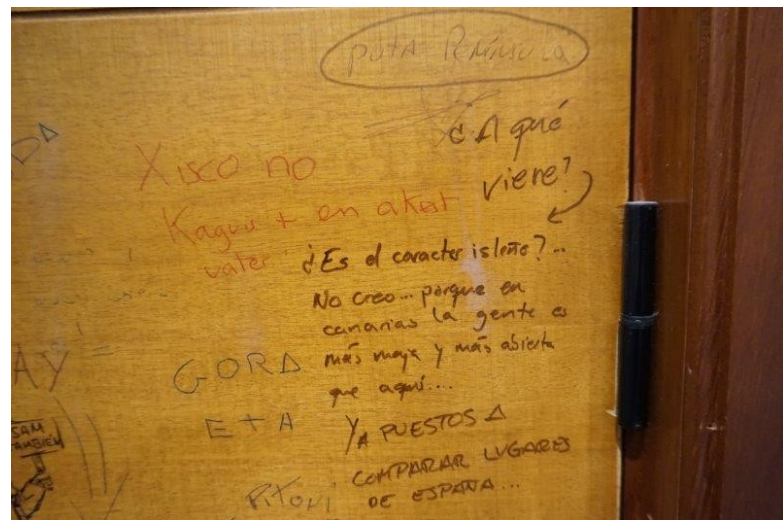 PUTA PENÍNSULA
¿A qué
viene?
Xisco no
Kagui + en aket
vater
¿Es el caracter isleño?...
No creo... porque en
canarias la gente es
más maja y más abierta
que aquí....
GORA
ETA
YA PUESTOS A
COMPARAR LUGARES
DE ESPAÑA...
PITONI
AY
SAM
TAMBIÉN